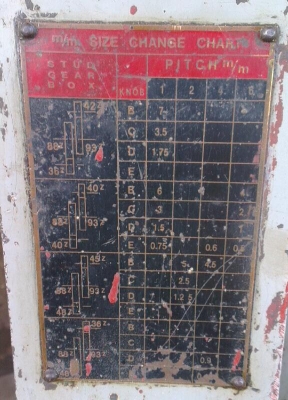 m/m SIZE CHANGE CHART
STUD GEAR BOX
PITCH m/m
KNOB 1 2 4 8
42Z B 7
C 3.5
88Z 93Z D 1.75
36Z E
40Z B 6 4
C 3 2
88Z 93Z D 1.5 1
40Z E 0.75 0.6
B 5 4.5
C 2.5
88Z 93Z D 1.25
48Z E
36Z B
C
88Z 93Z D 0.9